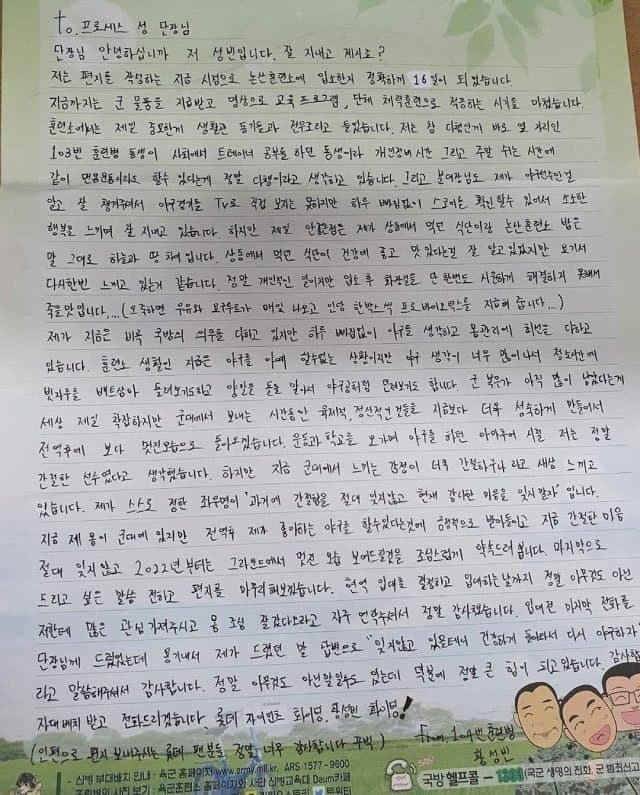 to. 프로세스 성 단장님
단장님 안녕하십니까 저 성빈입니다. 잘 지내고 계시죠?
저는 편지를 작성하는 지금 시점으로 논산훈련소에 입소한지 정확하게 16일이 되었습니다.
지금까지는 군 물품을 지급받고 영상으로 교육 프로그램, 단체 체력훈련으로 적응하는 시기를 마쳤습니다.
훈련소에서는 제일 중요한게 생활관 동기들과 전우조라고 들었습니다. 저는 참 다행인게 바로 옆 자리인
103번 훈련병 동생이 사회에서 트레이너 공부를 하던 동생이라 개인정비시간 그리고 주말 쉬는 시간에
같이 맨몸운동이라도 할수 있다는게 정말 다행이라고 생각하고 있습니다. 그리고 분대장님도 제가 야구선수인걸
알고 잘 챙겨주셔서 야구경기를 TV로 직접 보지는 못하지만 하루 빠짐없이 스코어를 확인할수 있어서 소소한
행복을 느끼며 잘 지내고 있습니다. 하지만 제일 안좋은점은 제가 상동에서 먹던 식단이랑 논산훈련소 밥은
말 그대로 하늘과 땅 차이입니다. 상동에서 먹던 식단이 건강에 좋고 맛있다는걸 잘 알고있었지만 여기서
다시한번 느끼고 있는거 같습니다. 정말 개인적인 일이지만 입소 후 화장실을 단 한번도 시원하게 해결하지 못해서
죽을맛입니다....(오죽하면 우유와 요구르트가 매일 나오고 인당 한박스씩 프로바이오틱스를 지급해 줍니다...)
제가 지금은 비록 국방의 의무를 다하고 있지만 하루 빠짐없이 야구를 생각하고 몸관리에 최선을 다하고
있습니다. 훈련소 생활인 지금은 야구를 아예 할수없는 상황이지만 야구 생각이 너무 많이나서 청소시간에
빗자루를 배트삼아 돌려보기도하고 양말을 돌돌 말아서 야구공처럼 던져보기도 합니다. 군 복무가 아직 많이 남았다는게
세상 제일 막막하지만 군대에서 보내는 시간동안 육체적, 정신적인 것들로 지금보다 더욱 성숙하게 만들어서
전역후에 보다 멋진모습으로 돌아오겠습니다. 운동과 학교를 오가며 야구를 하던 아마추어 시절 저는 정말
간절한 선수였다고 생각했습니다. 하지만 지금 군대에서 느끼는 감정이 더욱 간절하구나 라고 새삼 느끼고
있습니다. 제가 스스로 정한 좌우명이 '과거에 간절함을 절대 잊지않고 현재 감사한 마음을 잊지말자' 입니다.
지금 제 몸이 군대에 있지만 전역후 제가 좋아하는 야구를 할수있다는것에 긍정적으로 받아들이고 지금 간절한 마음
절대 잊지않고 2022년부터는 그라운드에서 멋진 모습 보여드릴것을 조심스럽게 약속드려 봅니다. 마지막으로
드리고 싶은 말씀 전하고 편지를 마무리해보겠습니다. 현역 입대를 결정하고 입대하는날까지 정말 아무것도 아닌
저한테 많은 관심 가져주시고 몸 조심 잘갔다오라고 자주 연락주셔서 정말 감사했습니다. 입대전 마지막 전화를
단장님께 드렸었는데 용기내서 제가 드렸던 말 답변으로 "잊지않고 있을테니 건강하게 돌아와서 다시 야구하자"
라고 말씀해주셔서 감사합니다. 정말 아무것도 아닌말일수도 있는데 덕분에 정말 큰 힘이 되고있습니다. 감사합
자대배치 받고 전화드리겠습니다. 롯데 자이언츠 화이팅. 황성빈 화이팅!
(인편으로 편지 보내주시는 롯데 팬분들 정말 너무 감사합니다 꾸벅)
From. 104번 훈련병
황성빈
- 신병 부대배치 안내 : 육군 홈페이지 www.army.mil.kr, ARS 1577 - 9600
훈련병의 사진 보기 : 육군훈련소 홈페이지와 사단 신병교육대 Daum카페
트위터
국방헬프콜 - 1303 (국군 생명의 전화, 군 범죄신고